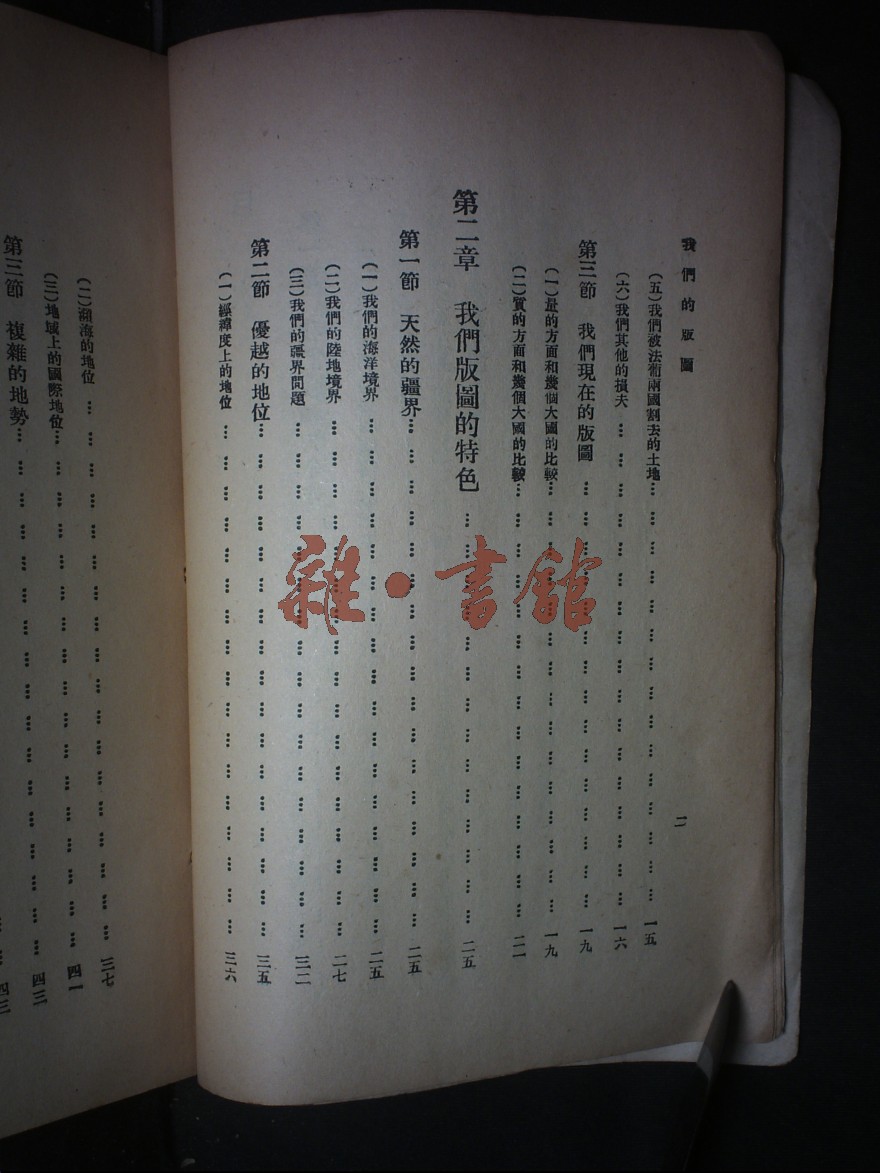 我們的版圖
二
（五）我們被法葡兩國割去的土地………………………………………一五
（六）我們其他的損失………………………………………一六
第三節 我們現在的版圖………………………………………一九
（一）量的方面和幾個大國的比較………………………………………一九
（二）質的方面和幾個大國的比較………………………………………二一
第二章 我們版圖的特色………………………………………二五
第一節 天然的疆界………………………………………二五
（一）我們的海洋境界………………………………………二五
（二）我們的陸地境界………………………………………二七
（三）我們的疆界問題………………………………………三二
第二節 優越的地位………………………………………三五
（一）經緯度上的地位………………………………………三六
（二）瀕海的地位………………………………………三七
（三）地域上的國際地位………………………………………四一
第三節 複雜的地勢………………………………………四三
四三
雜·書館